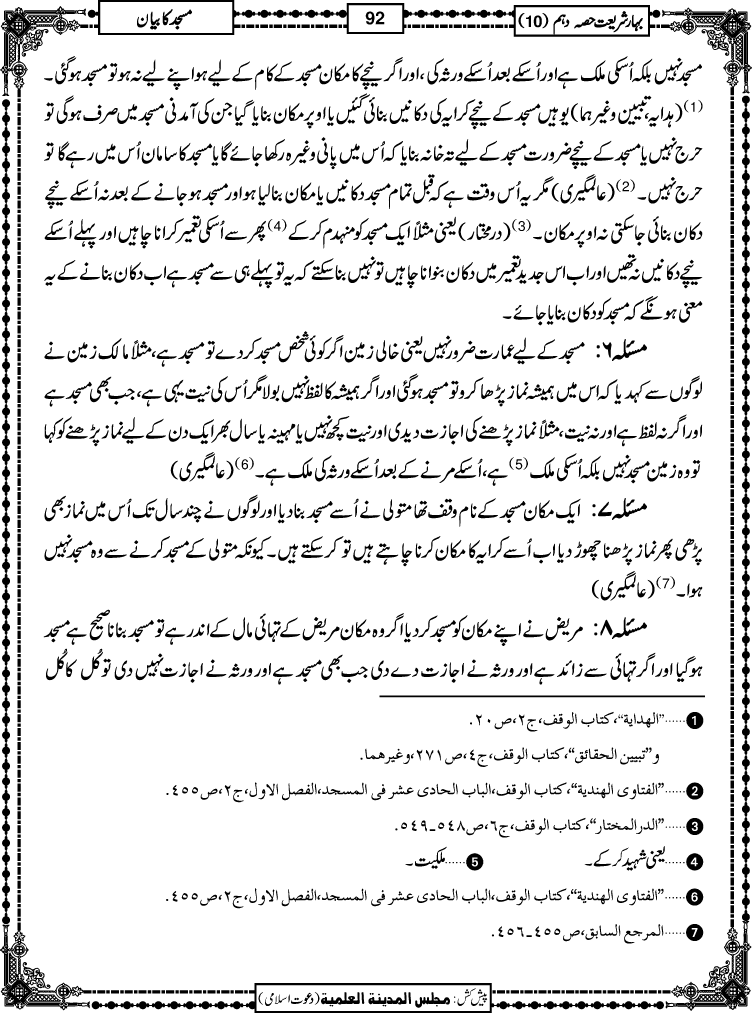 بہارِ شریعت حصہ دہم (10)
92
مسجد کا بیان
مسجد نہیں بلکہ اُسکی ملک ہے اور اُسکے بعد اُسکے ورثہ کی، اور اگر نیچے کا مکان مسجد کے کام کے لیے ہو اپنے لیے نہ ہو تو مسجد ہوگئی۔
(1) (ہدایہ، تبیین وغیرہما) یوہیں مسجد کے نیچے کرایہ کی دکانیں بنائی گئیں یا اوپر مکان بنایا گیا جن کی آمدنی مسجد میں صرف ہوگی تو
حرج نہیں یا مسجد کے نیچے ضرورت مسجد کے لیے تہ خانہ بنایا کہ اُس میں پانی وغیرہ رکھا جائے گا یا مسجد کا سامان اُس میں رہے گا تو
حرج نہیں۔(2) (عالمگیری) مگر یہ اُس وقت ہے کہ قبل تمام مسجد دکانیں یا مکان بنالیا ہو اور مسجد ہو جانے کے بعد نہ اُسکے نیچے
دکان بنائی جاسکتی نہ اوپر مکان۔(3) (درمختار) یعنی مثلاً ایک مسجد کو منہدم کرکے(4) پھر سے اُسکی تعمیر کرانا چاہیں اور پہلے اُسکے
نیچے دکانیں نہ تھیں اور اب اس جدید تعمیر میں دکان بنوانا چاہیں تو نہیں بنا سکتے کہ یہ تو پہلے ہی سے مسجد ہے اب دکان بنانے کے یہ
معنی ہونگے کہ مسجد کو دکان بنایا جائے۔
مسئلہ ۶: مسجد کے لیے عمارت ضرور نہیں یعنی خالی زمین اگر کوئی شخص مسجد کردے تو مسجد ہے، مثلاً مالک زمین نے
لوگوں سے کہدیا کہ اس میں ہمیشہ نماز پڑھا کرو تو مسجد ہوگئی اور اگر ہمیشہ کا لفظ نہیں بولا مگر اُس کی نیت یہی ہے، جب بھی مسجد ہے
اور اگر نہ لفظ ہے اور نہ نیت، مثلاً نماز پڑھنے کی اجازت دیدی اور نیت کچھ نہیں یا مہینہ یا سال بھر ایک دن کے لیے نماز پڑھنے کو کہا
تو وہ زمین مسجد نہیں بلکہ اُسکی ملک (5) ہے، اُسکے مرنے کے بعد اُسکے ورثہ کی ملک ہے۔(6) (عالمگیری)
مسئلہ ۷: ایک مکان مسجد کے نام وقف تھا متولی نے اُسے مسجد بنا دیا اور لوگوں نے چند سال تک اُس میں نماز بھی
پڑھی پھر نماز پڑھنا چھوڑ دیا اب اُسے کرایہ کا مکان کرنا چاہتے ہیں تو کرسکتے ہیں۔ کیونکہ متولی کے مسجد کرنے سے وہ مسجد نہیں
ہوا۔(7) (عالمگیری)
مسئلہ ۸: مریض نے اپنے مکان کو مسجد کردیا اگر وہ مکان مریض کے تہائی مال کے اندر ہے تو مسجد بنانا صحیح ہے مسجد
ہوگیا اور اگر تہائی سے زائد ہے اور ورثہ نے اجازت دے دی جب بھی مسجد ہے اور ورثہ نے اجازت نہیں دی تو کُل کا کُل
1 ......"الهداية"، كتاب الوقف، ج٢، ص٢٠.
و"تبيين الحقائق"، كتاب الوقف، ج٤، ص٢٧١، وغيرهما.
2 ......"الفتاوى الهندية"، كتاب الوقف، الباب الحادى عشر فى المسجد، الفصل الاول، ج٢، ص٤٥٥.
3 ......"الدرالمختار"، كتاب الوقف، ج٦، ص٥٤٨-٥٤٩.
4 ......یعنی شہید کرکے۔ 5 ......ملکیت۔
6 ......"الفتاوى الهندية"، كتاب الوقف، الباب الحادى عشر فى المسجد، الفصل الاول، ج٢، ص٤٥٥.
7 ......المرجع السابق، ص٤٥٥-٤٥٦.
پیش کش: مجلس المدينة العلمية (دعوت اسلامی)